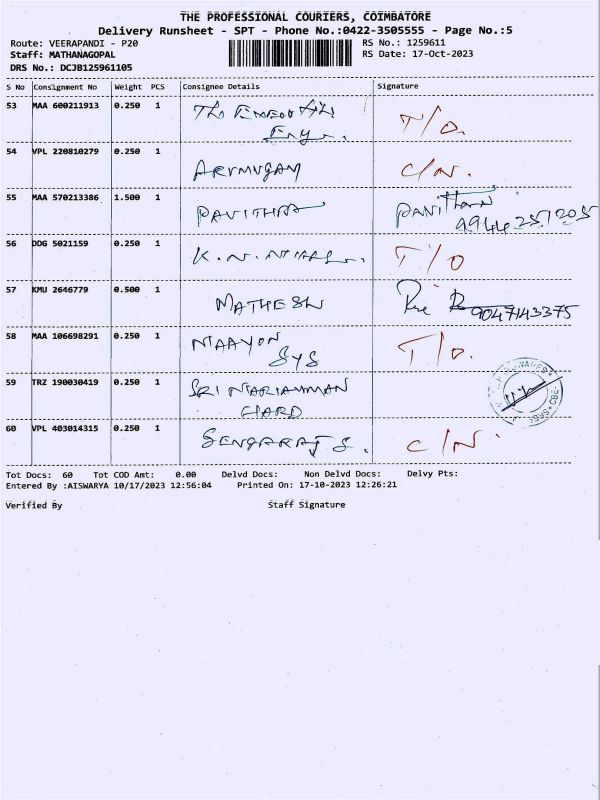 THE PROFESSIONAL COURIERS, COIMBATORE
Delivery Runsheet - SPT - Phone No.:0422-3505555 - Page No.:5
Route: VEERAPANDI - P20
Staff: MATHANAGOPAL
DRS No.: DCJB125961105
RS No.: 1259611
RS Date: 17-Oct-2023
S No Consignment No Weight PCS Consignee Details Signature
53 MAA 600211913 0.250 1 T/O.
54 VPL 220810279 0.250 1 ARUMUGAM C/N.
55 MAA 570213386 1.500 1 PAVITHRA 9944251205
56 DDG 5021159 0.250 1 K.N. T/O
57 KMU 2646779 0.500 1 MATHESH 9047143375
58 MAA 106698291 0.250 1 MAAYON SYS T/O.
59 TRZ 190030419 0.250 1 SRI MARIAMMAN HARD
60 VPL 403014315 0.250 1 SENGARAJ S. C/N.
Tot Docs: 60 Tot COD Amt: 0.00 Delvd Docs: Non Delvd Docs: Delvy Pts:
Entered By :AISWARYA 10/17/2023 12:56:04 Printed On: 17-10-2023 12:26:21
Verified By Staff Signature